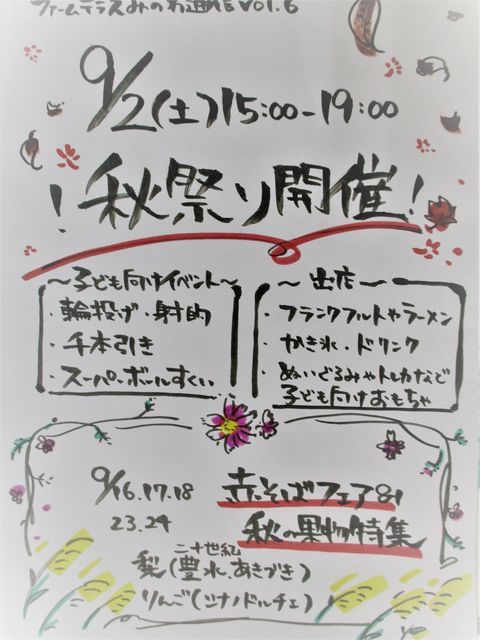 ファームテラスみのわ通信 vol.6
9/2(土)15:00-19:00
!秋祭り開催!
~子ども向けイベント~
・輪投げ・射的
・千本引き
・スーパーボールすくい
~出店~
・フランクフルトやラーメン
・かき氷・ドリンク
・ぬいぐるみやトレカなど
子ども向けおもちゃ
9/16.17.18
23.24
赤そばフェア&
秋の果物特集
二十世紀
梨(豊水、あきづき)
りんご(シナノドルチェ)